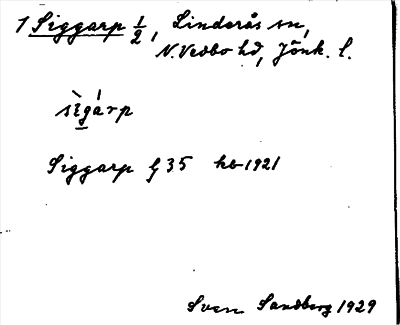 1 Siggarp ½, Linderås sn,
N. Vedbo hd, Jönk. l.
sìgárp
Siggarp f 35 hb 1921
Sven Sandberg 1929